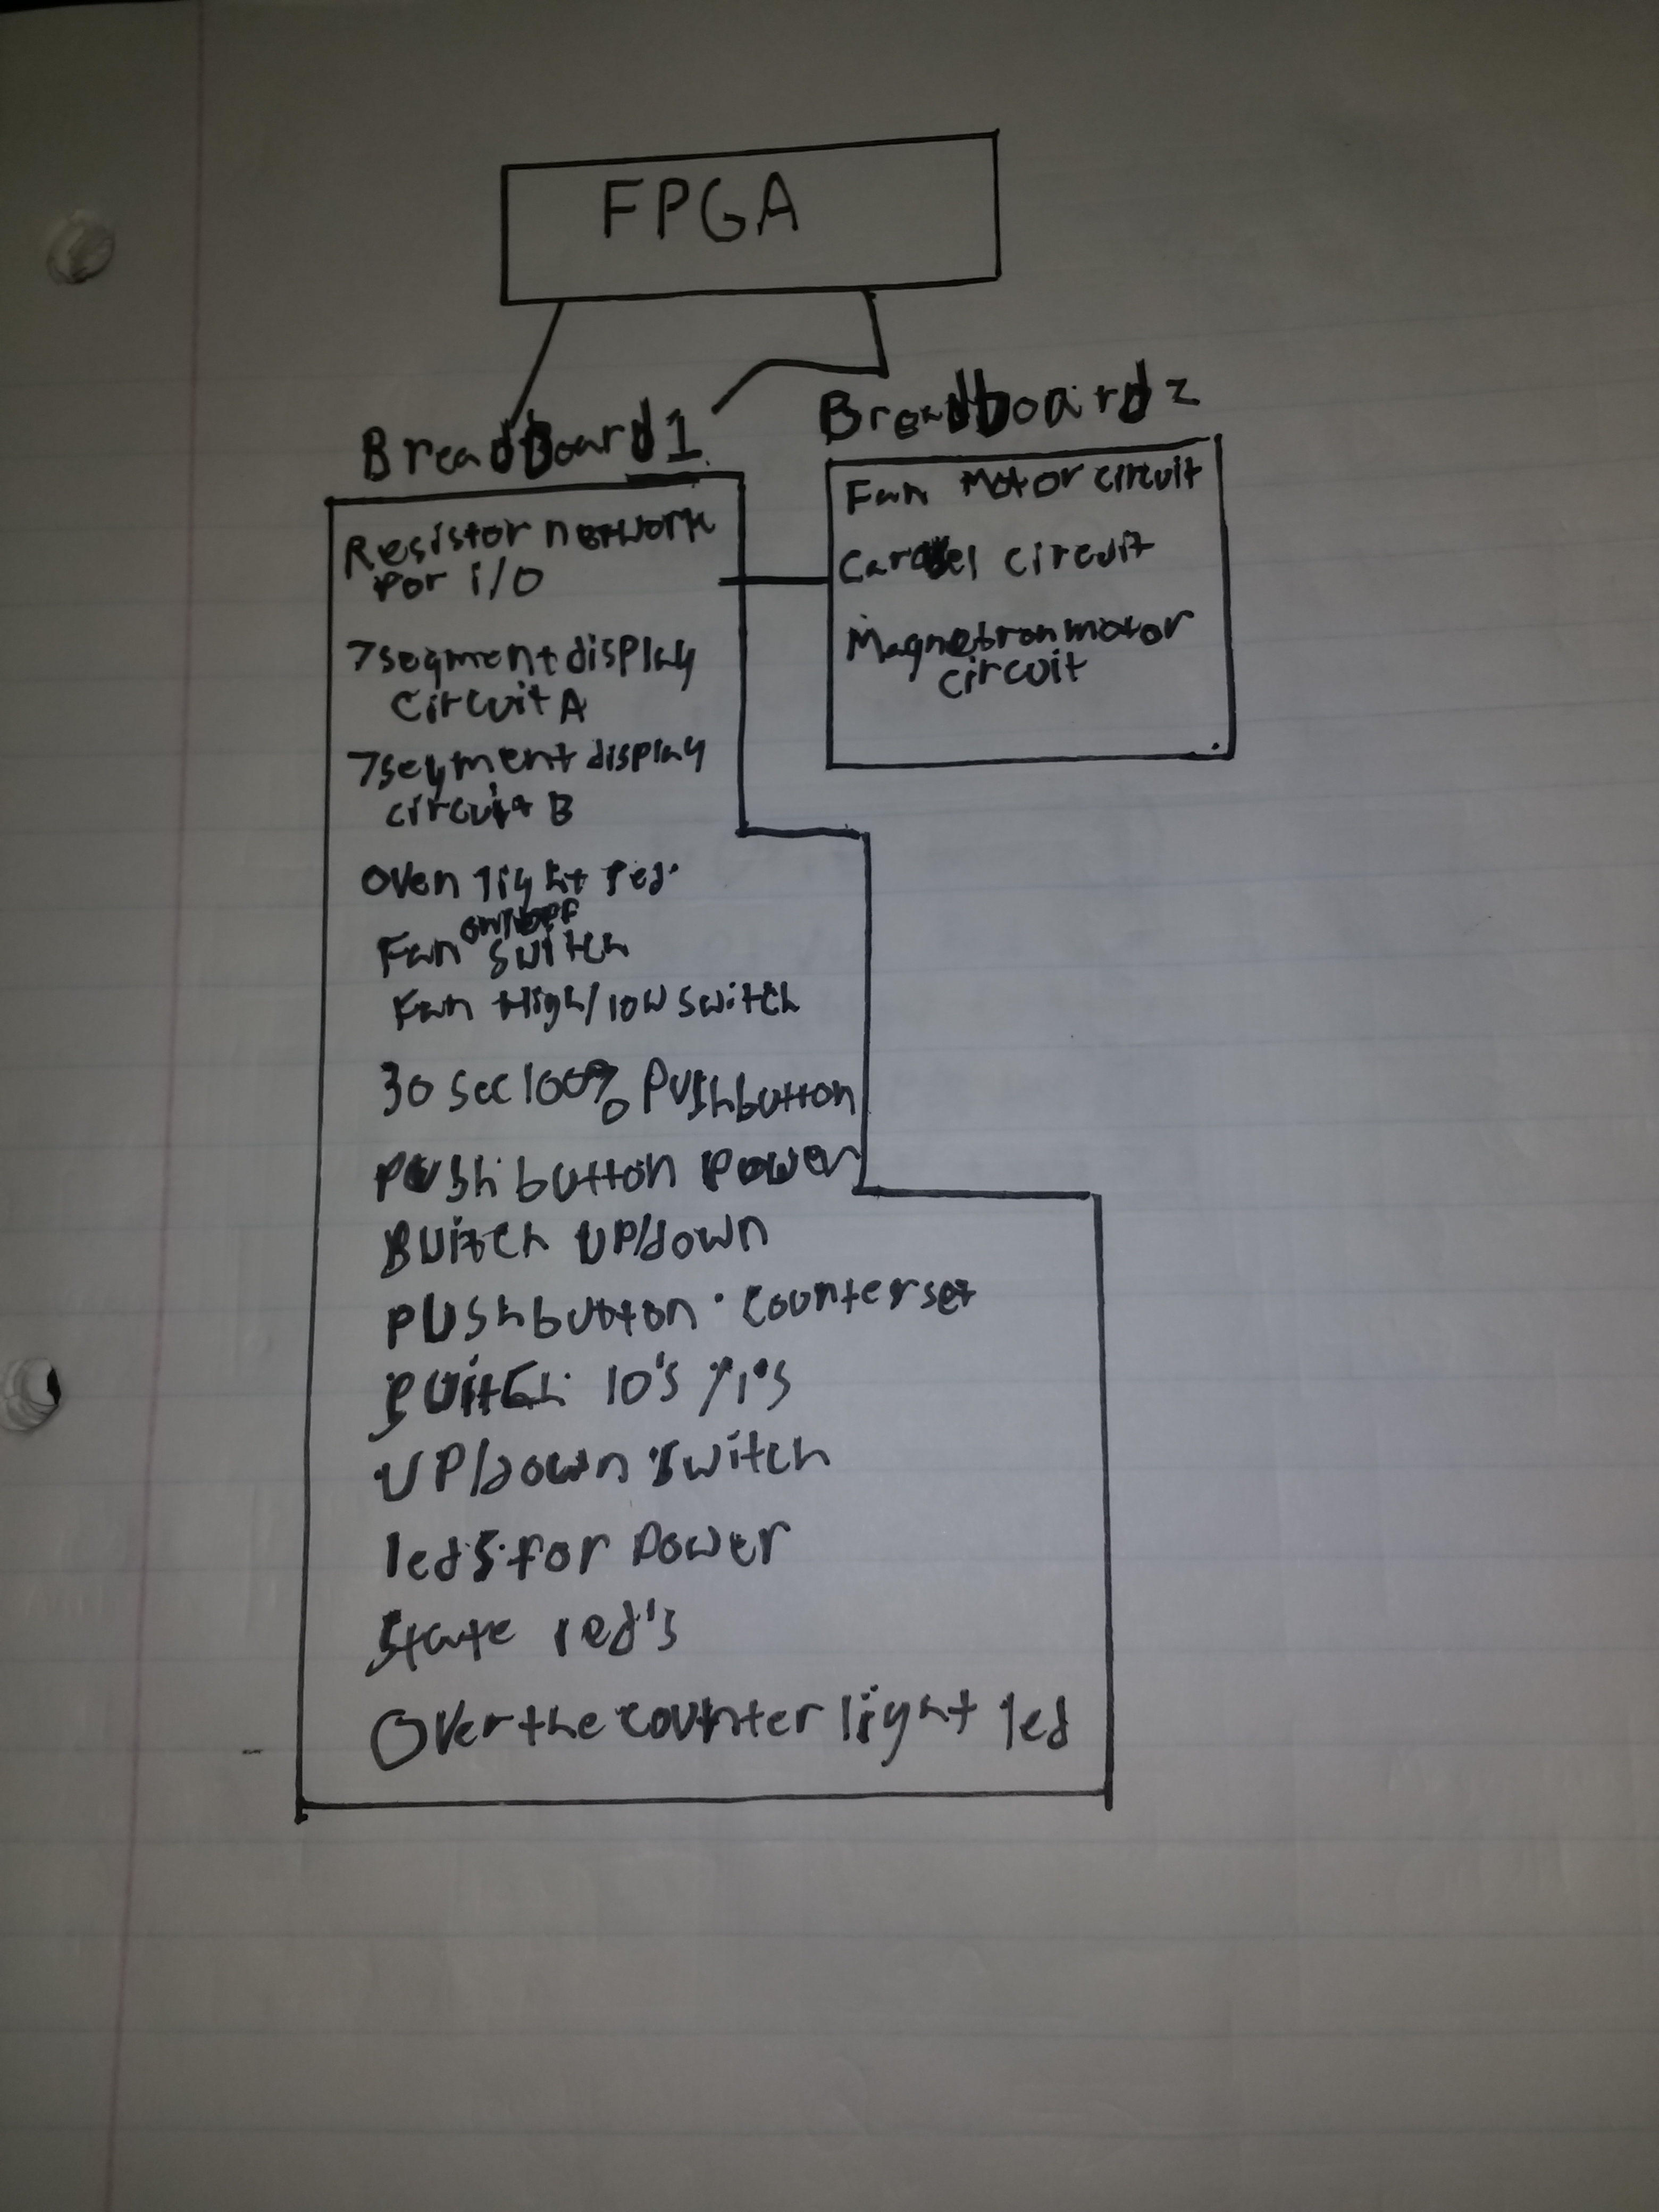 FPGA
BreadBoard 1
Resistor network
for i/O
7 segment display
circuit A
7 segment display
circuit B
Oven light led
on/off
Fan switch
Fan High/low switch
30 sec 100% Pushbutton
Push button Power
Switch UP/down
pushbutton counterset
switch 10's / 1's
UP/down switch
leds for power
state led's
Over the counter light led
Breadboard 2
Fan Motor circuit
Carosel circuit
Magnetron motor
circuit